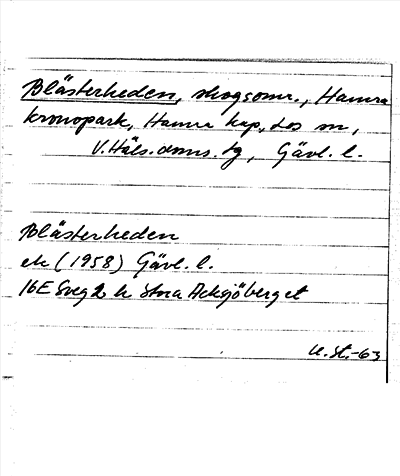 Blästerheden, skogsomr., Hamra
kronopark, Hamra kap, Los sn,
V. Häls. doms. tg, Gävl. l.
Blästerheden
ek (1958) Gävl. l.
16E Sveg 2 h Stora Acksjöberget
U. St. -63